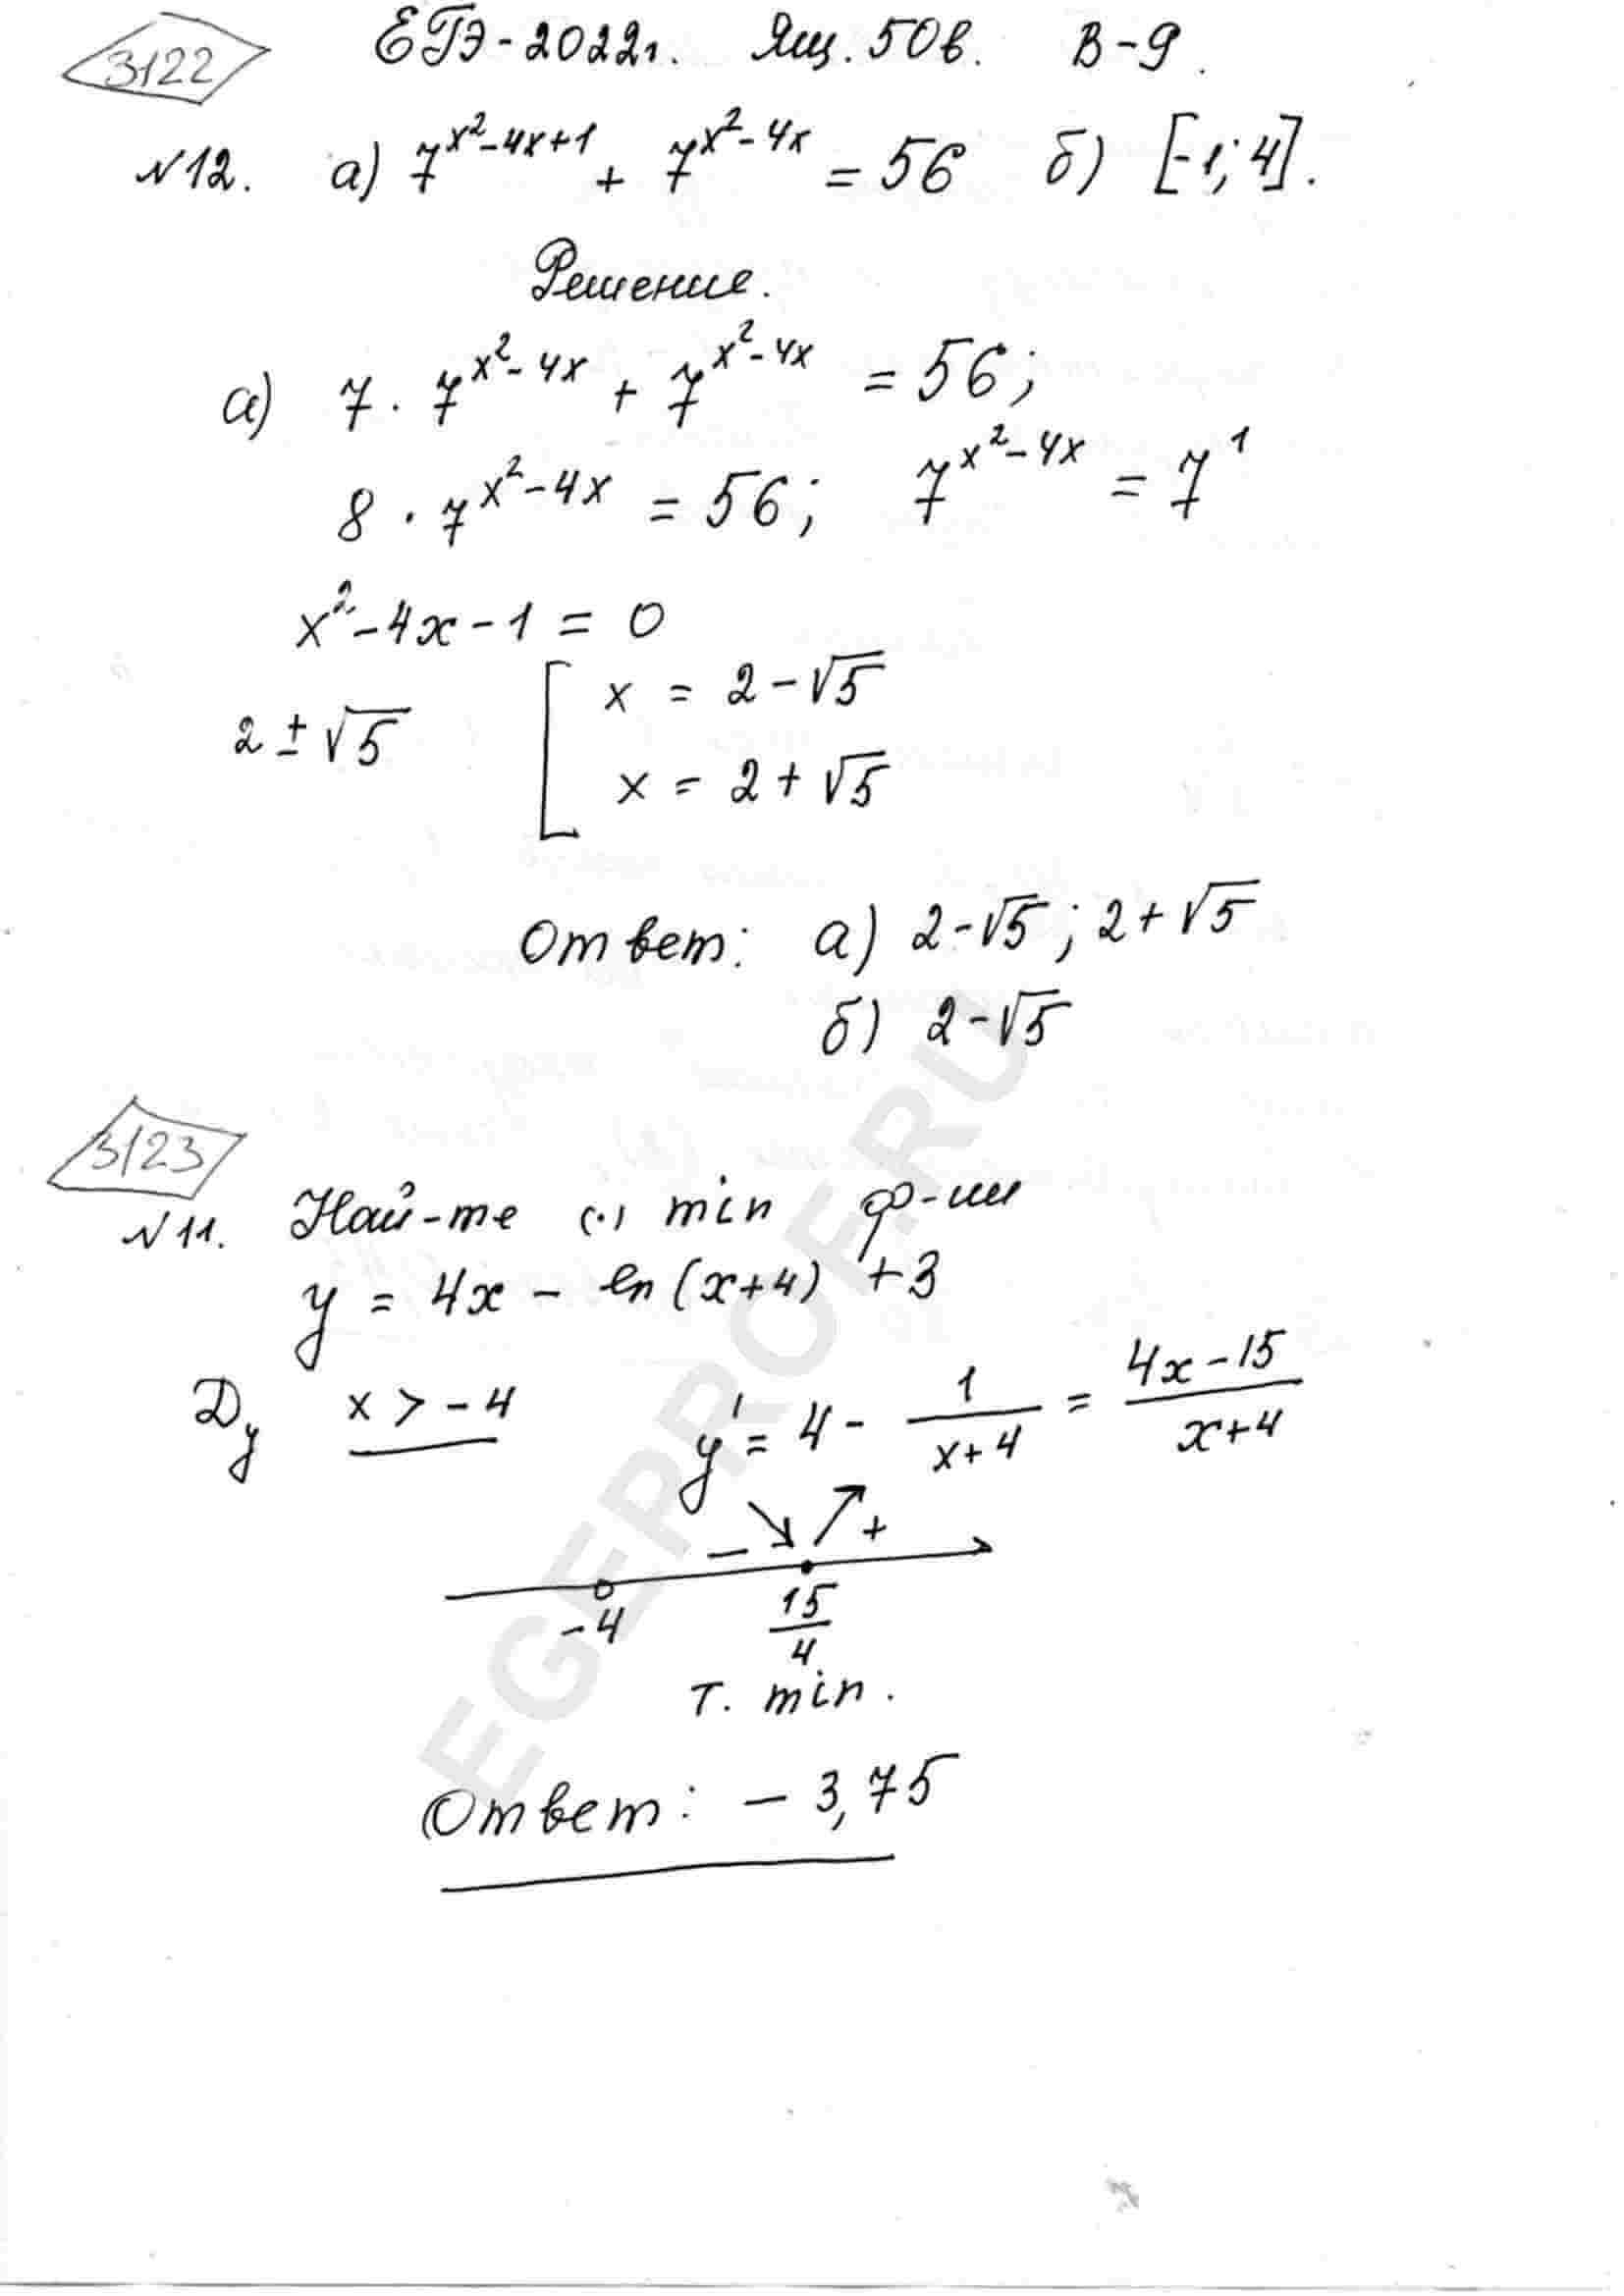 3122
ЕГЭ-2022г. Ящ. 50в. В-9.
№12. а) 7^{x²-4x+1} + 7^{x²-4x} = 56 б) [-1; 4].
Решение.
а) 7 · 7^{x²-4x} + 7^{x²-4x} = 56;
8 · 7^{x²-4x} = 56; 7^{x²-4x} = 7^1
x²-4x-1 = 0
2 ± √5 [ x = 2-√5
x = 2+√5
Ответ: а) 2-√5; 2+√5
б) 2-√5
3123
№11. Най-те (·) min ф-ии
y = 4x - ln(x+4) +3
Dy x > -4 y' = 4 - 1/(x+4) = (4x-15)/(x+4)
- ↘ ↗ +
-4 15/4
т. min.
Ответ: -3,75
EGEPROF.RU